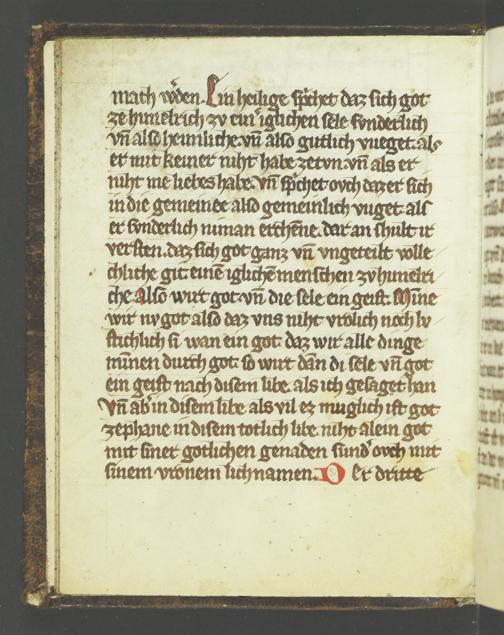 mach wͤden. Ein heilige spͥchet daz sich got
ze himelrich zv ein iglichen sele svnderlich
vn̄ also heimliche. vn̄ also gutlich vueget. als
er mit keiner niht habe zetvn. vn̄ als er
niht me liebes habe. Vn̄ spͥchet ovch daz er sich
in die gemeinde also gemeinlich vuget. als
er svnderlich niman erchene. dar an svlt ir
versten. daz sich got ganz vn̄ vngeteilt volle
chliche git. einē iglichē menschen zv himelri
che. Also wirt got vn̄ die sele ein geist. Mīne
wir nv got also daz vns niht vrolich noch lv
stichlich si wan ein got. daz wir alle dinge
minnen durch got. so wirt dān di sele vn̄ got
ein geist nach disem libe. als ich gesaget han
Vn̄ ab' in disem libe. als vil ez muglich ist got
zephane in disem totlich libe. niht alein got
mit siner gotlichen genaden sund' ovch mit
sinem vronem lichnamen. D er dritte